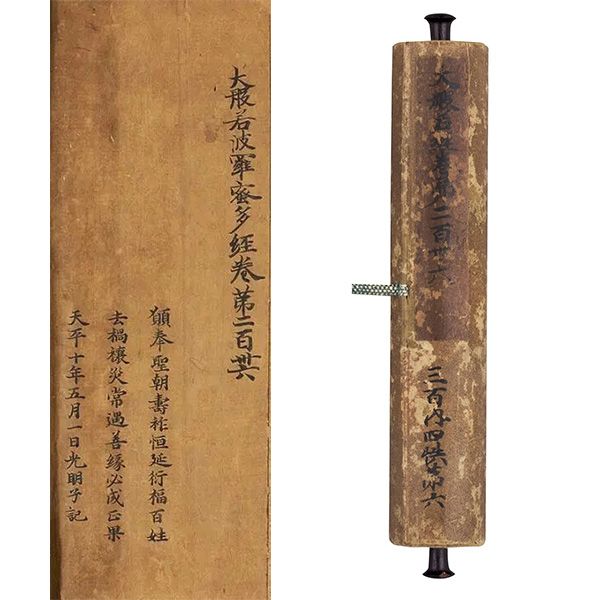 大般若波羅蜜多經卷苐二百卅六
願奉聖朝壽祚恒延衍福百姓
去禍禳災常遇善緣必成正果
天平十年五月一日光明子記
大般若經卷苐二百卅六
三百内四帙
六